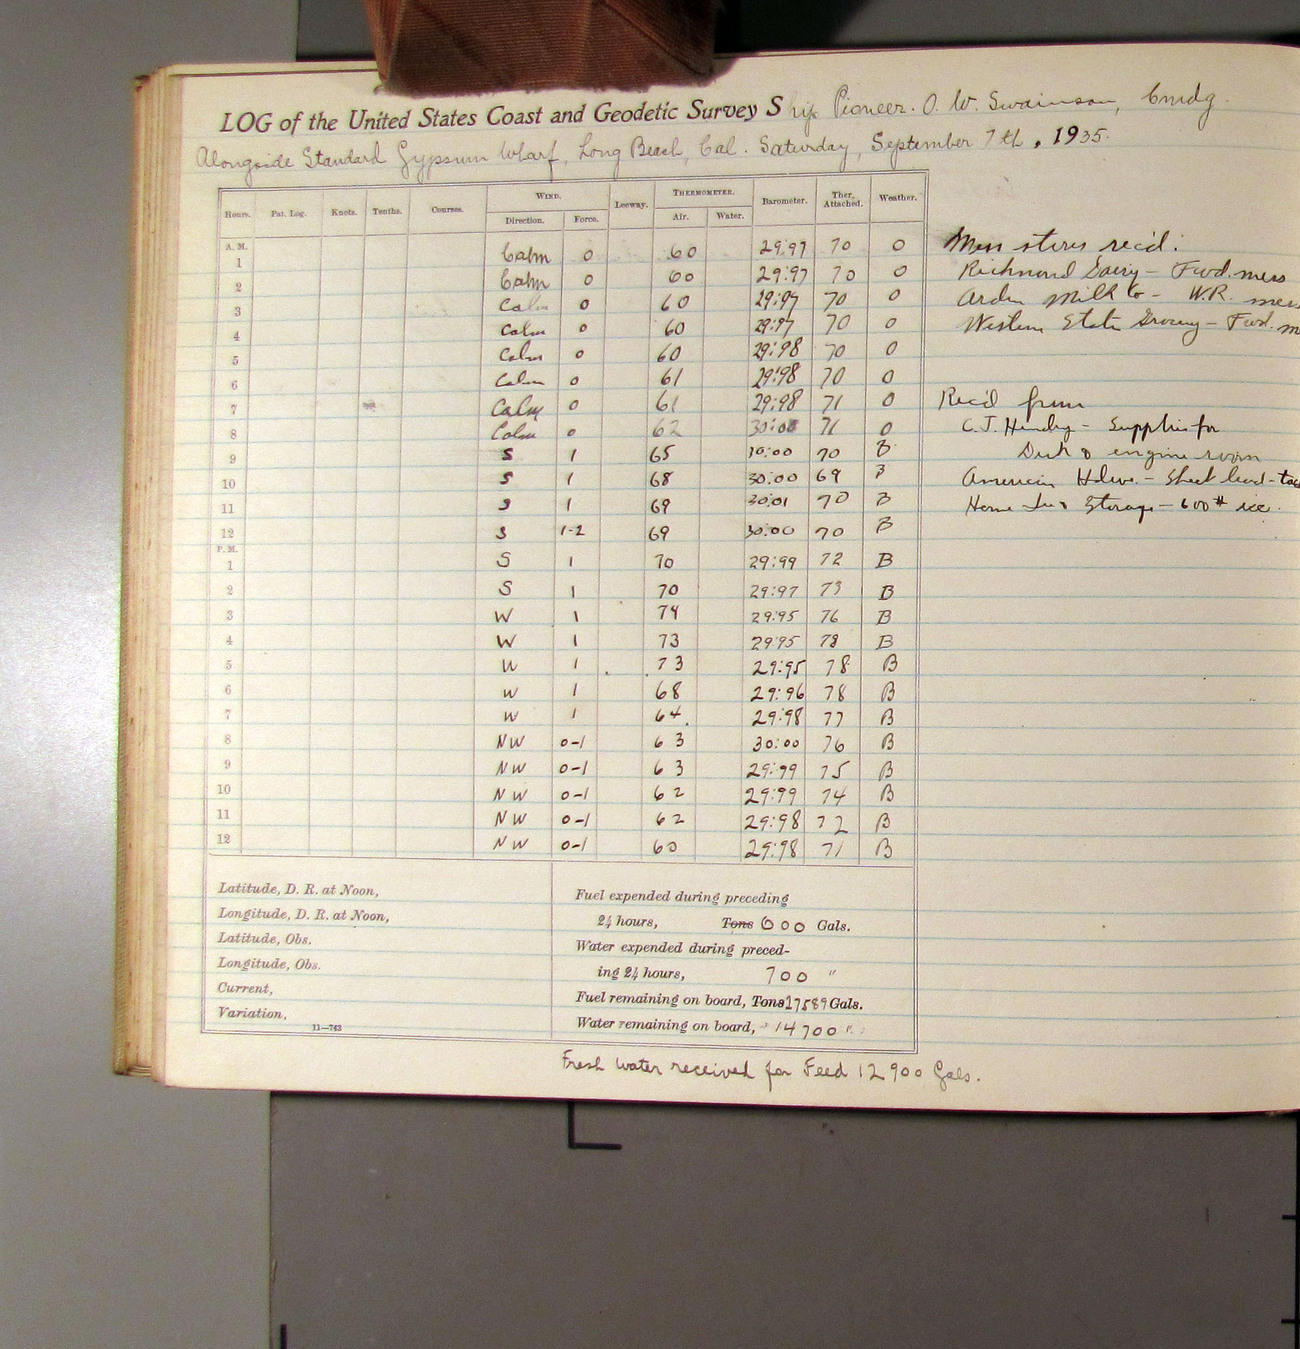 LOG of the United States Coast and Geodetic Survey Ship Pioneer. O. W. Swainson, Cmdg.
Alongside Standard Gypsum Wharf, Long Beach, Cal. Saturday, September 7th, 1935.
Hours. Pat. Log. Knots. Tenths. Courses. WIND. Direction. Force. Leeway. THERMOMETER. Air. Water. Barometer. Ther. Attached. Weather.
A. M.
1 Calm 0 60 29:97 70 0
2 Calm 0 60 29:97 70 0
3 Calm 0 60 29:97 70 0
4 Calm 0 60 29:97 70 0
5 Calm 0 60 29:98 70 0
6 Calm 0 61 29:98 70 0
7 Calm 0 61 29:98 71 0
8 Calm 0 62 30:00 71 0
9 S 1 65 30:00 70 B
10 S 1 68 30:00 69 B
11 S 1 69 30:01 70 B
12 S 1-2 69 30:00 70 B
P. M.
1 S 1 70 29:99 72 B
2 S 1 70 29:97 73 B
3 W 1 74 29:95 76 B
4 W 1 73 29:95 78 B
5 W 1 73 29:95 78 B
6 W 1 68 29:96 78 B
7 W 1 64 29:98 77 B
8 NW 0-1 63 30:00 76 B
9 NW 0-1 63 29:99 75 B
10 NW 0-1 62 29:99 74 B
11 NW 0-1 62 29:98 72 B
12 NW 0-1 60 29:98 71 B
Mess stores rec'd:
Richmond Dairy - Fwd. mess
Arden Milk Co - W.R. mess
Western State Grocery - Fwd. m
Rec'd from
C.J. Hendry - Supplies for
Deck & engine room
American Hdwe. - Sheet lead - tac
Home Ice & Storage - 600# ice.
Latitude, D. R. at Noon,
Longitude, D. R. at Noon,
Latitude, Obs.
Longitude, Obs.
Current,
Variation,
11—763
Fuel expended during preceding
24 hours, Tons 600 Gals.
Water expended during preced-
ing 24 hours, 700 "
Fuel remaining on board, Tons 27589 Gals.
Water remaining on board, 14700 "
Fresh water received for Feed 12900 Gals.